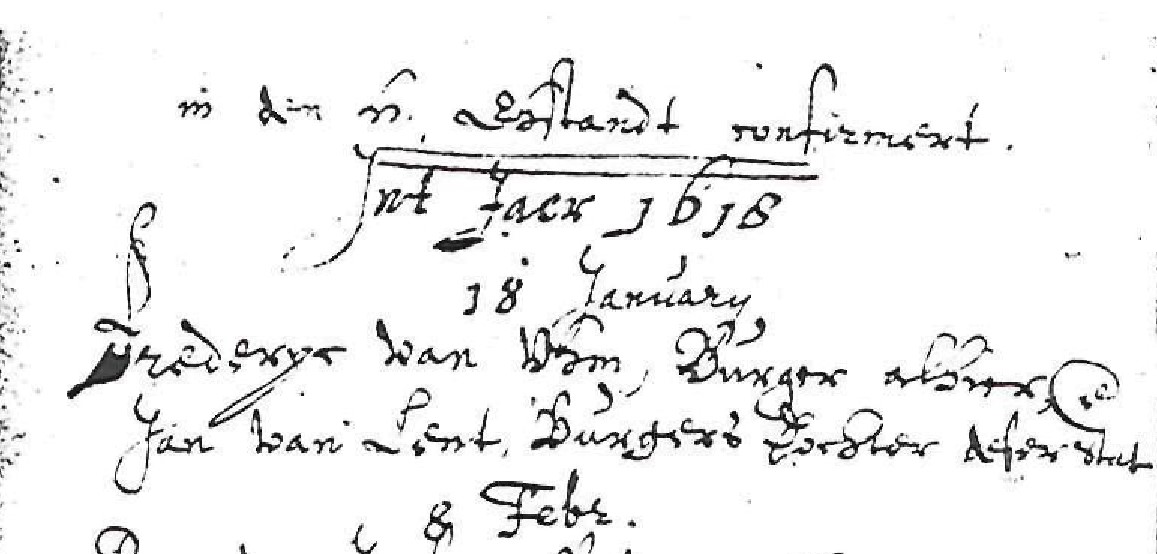 in den H. Ehstandt confirmert.
Int Jaer 1618
18 January
Frederyc van Uhm, Burger alhier, e
Jan van Lent, Burgers Dochter deser stat
8 Febr.